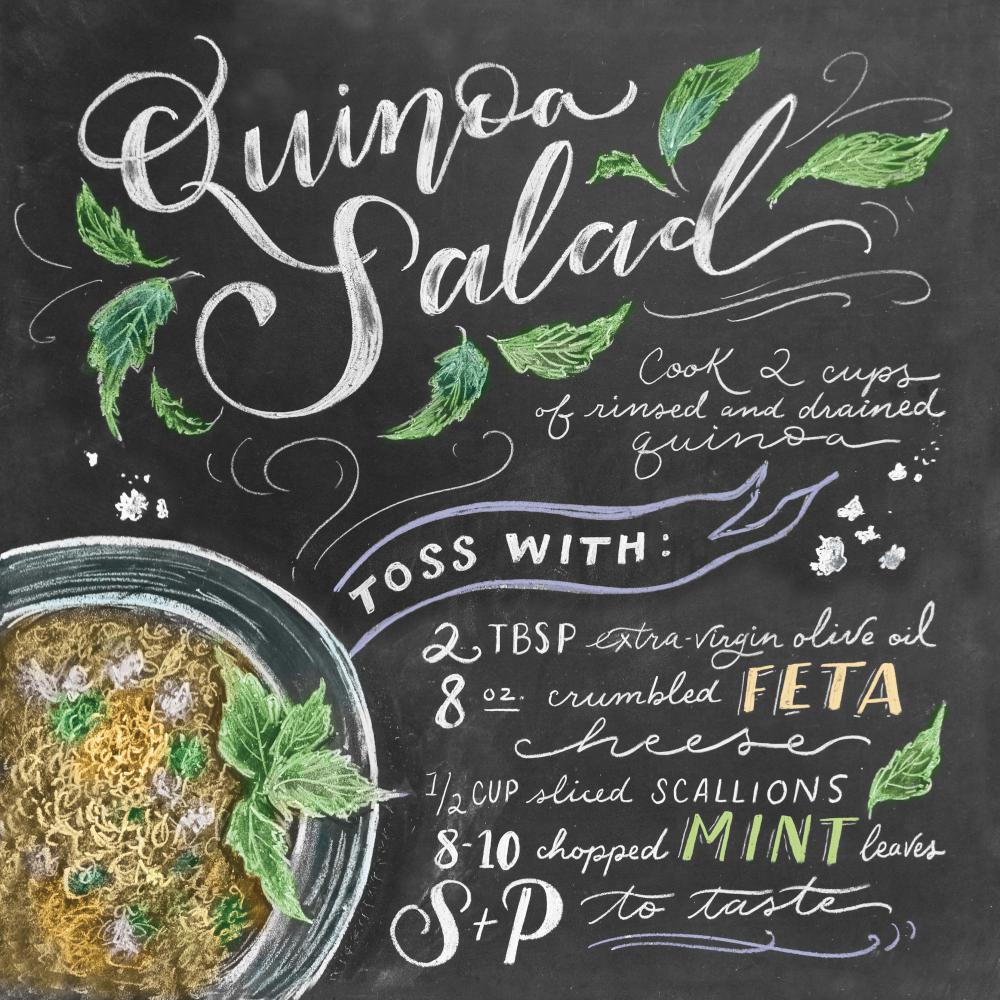 Quinoa
Salad
Cook 2 cups
of rinsed and drained
quinoa
TOSS WITH:
2 TBSP extra-virgin olive oil
8 oz. crumbled FETA
cheese
1/2 CUP sliced SCALLIONS
8-10 chopped MINT leaves
S+P to taste